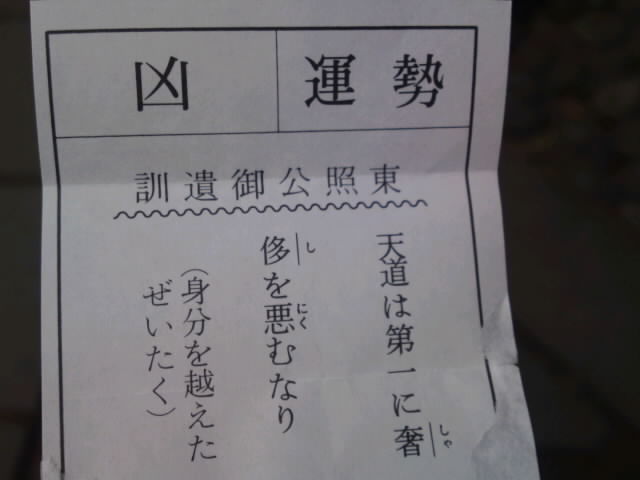 運勢
凶
東照公御遺訓
天道は第一に奢
しゃ
侈を悪むなり
し
にく
(身分を越えた
ぜいたく)